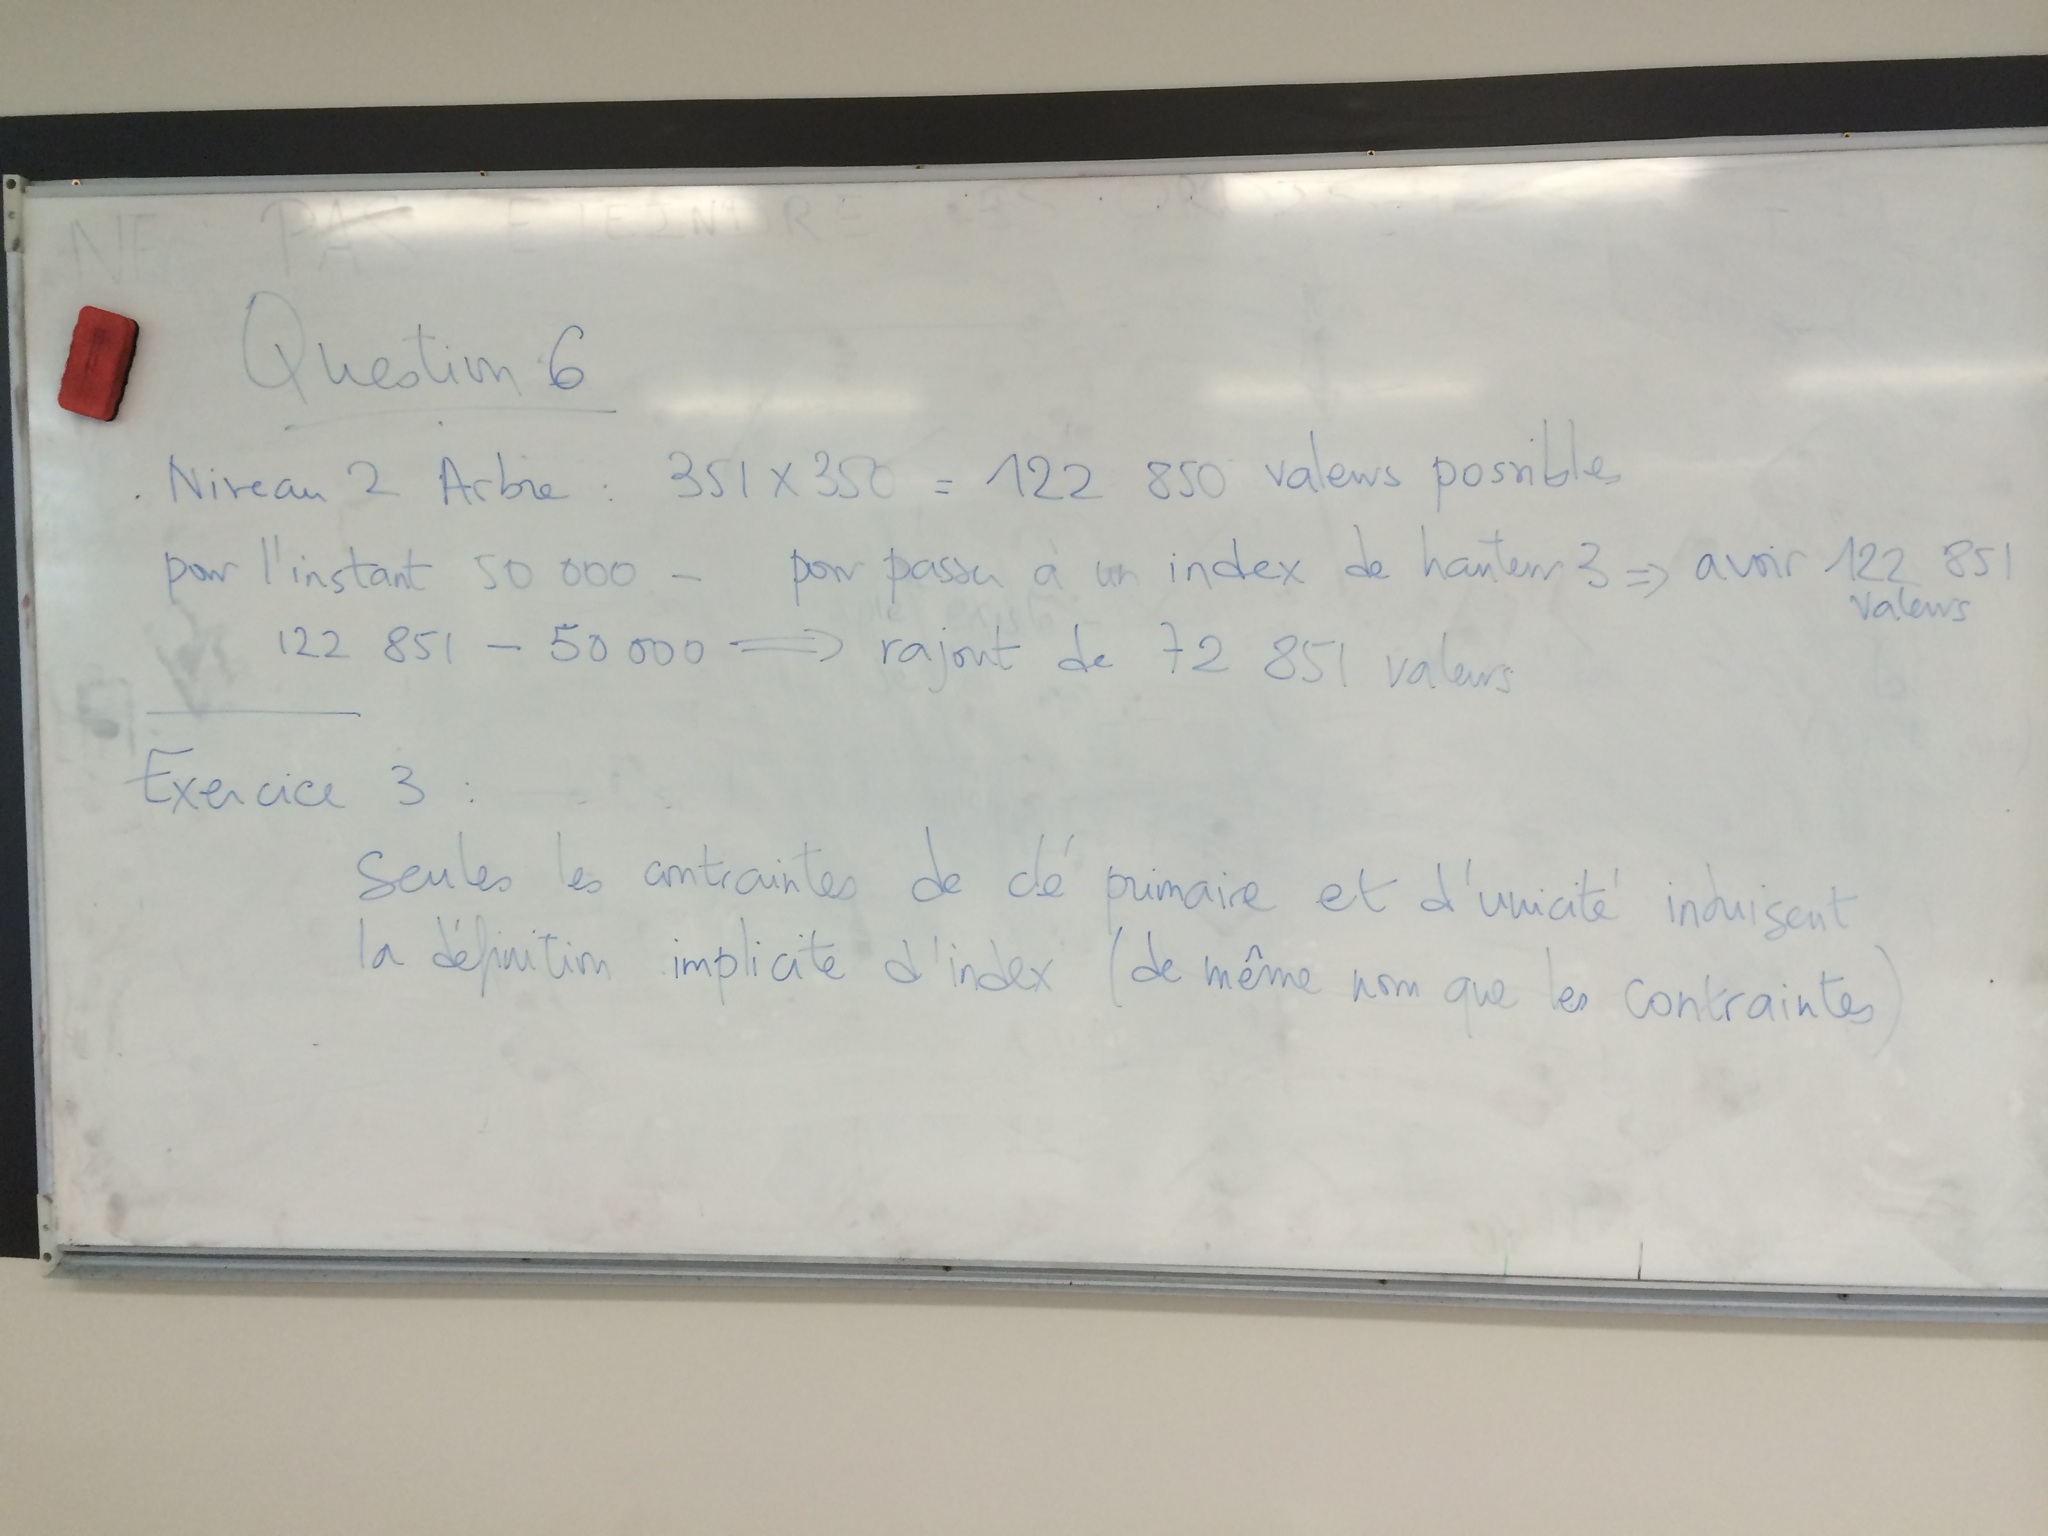 NE PAS ETEINDRE
Question 6
. Niveau 2 Arbre : 351 x 350 = 122 850 valeurs possibles
pour l'instant 50 000 - pour passer à un index de hauteur 3 => avoir 122 851
valeurs
122 851 - 50 000 => rajout de 72 851 valeurs
Exercice 3 :
Seules les contraintes de clé primaire et d'unicité induisent
la définition implicite d'index (de même nom que les contraintes)